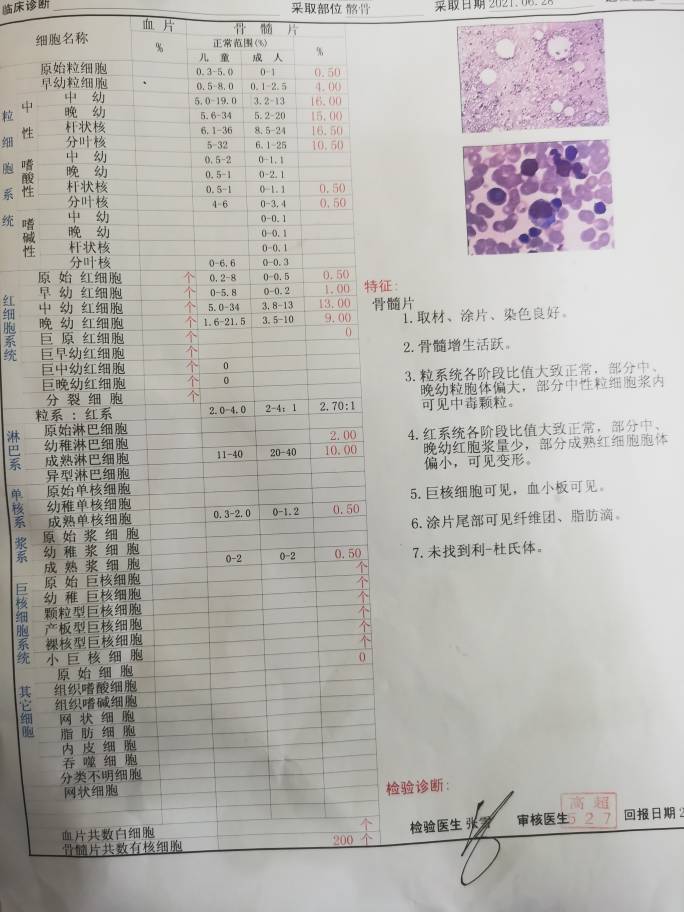 临床诊断
采取部位 髂骨
采取日期 2021.06.28
细胞名称 血片 骨髓片
% 正常范围(%) %
儿童 成人
粒细胞系统
原始粒细胞 0.3-5.0 0-1 0.50
早幼粒细胞 0.5-8.0 0.1-2.5 4.00
中性
中幼 5.0-19.0 3.2-13 16.00
晚幼 5.6-34 5.2-20 15.00
杆状核 6.1-36 8.5-24 16.50
分叶核 5-32 6.1-25 10.50
嗜酸性
中幼 0.5-2 0-1.1
晚幼 0.5-1 0-2.1
杆状核 0.5-1 0-1.1 0.50
分叶核 4-6 0-3.4 0.50
嗜碱性
中幼 0-0.1
晚幼 0-0.1
杆状核 0-0.1
分叶核 0-6.6 0-0.3
红细胞系统
原始红细胞 个 0.2-8 0-0.5 0.50
早幼红细胞 个 0-5.8 0-0.2 1.00
中幼红细胞 个 5.0-34 3.8-13 13.00
晚幼红细胞 个 1.6-21.5 3.5-10 9.00
巨原红细胞 个 0
巨早幼红细胞 个
巨中幼红细胞 个 0
巨晚幼红细胞 个 0
分裂细胞 个
粒系:红系 2.0-4.0 2-4:1 2.70:1
淋巴系
原始淋巴细胞
幼稚淋巴细胞 2.00
成熟淋巴细胞 11-40 20-40 10.00
异型淋巴细胞
单核系
原始单核细胞
幼稚单核细胞
成熟单核细胞 0.3-2.0 0-1.2 0.50
浆系
原始浆细胞
幼稚浆细胞
成熟浆细胞 0-2 0-2 0.50
巨核细胞系统
原始巨核细胞 个
幼稚巨核细胞 个
颗粒型巨核细胞 个
产板型巨核细胞 个
裸核型巨核细胞 个
小巨核细胞 个
0
其它细胞
原始细胞
组织嗜酸细胞
组织嗜碱细胞
网状细胞
脂肪细胞
内皮细胞
吞噬细胞
分类不明细胞
网状细胞
血片共数白细胞 个
骨髓片共数有核细胞 200 个
特征:
骨髓片
1. 取材、涂片、染色良好。
2. 骨髓增生活跃。
3. 粒系统各阶段比值大致正常,部分中、
晚幼粒胞体偏大,部分中性粒细胞浆内
可见中毒颗粒。
4. 红系统各阶段比值大致正常,部分中、
晚幼红胞浆量少,部分成熟红细胞胞体
偏小,可见变形。
5. 巨核细胞可见,血小板可见。
6. 涂片尾部可见纤维团、脂肪滴。
7. 未找到利-杜氏体。
检验诊断:
检验医生 张 审核医生 高超 回报日期 2
527